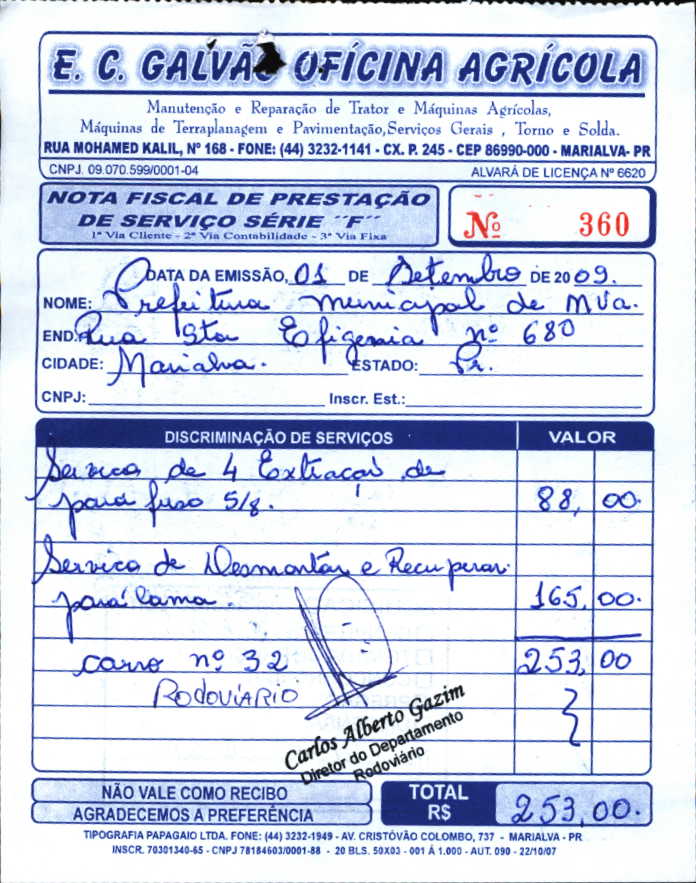 E. C. GALVÃO OFÍCINA AGRÍCOLA
Manutenção e Reparação de Trator e Máquinas Agrícolas,
Máquinas de Terraplanagem e Pavimentação,Serviços Gerais , Torno e Solda.
RUA MOHAMED KALIL, Nº 168 - FONE: (44) 3232-1141 - CX. P. 245 - CEP 86990-000 - MARIALVA- PR
CNPJ. 09.070.599/0001-04 ALVARÁ DE LICENÇA Nº 6620
NOTA FISCAL DE PRESTAÇÃO
DE SERVIÇO SÉRIE ´´F´´
1ª Via Cliente - 2ª Via Contabilidade - 3ª Via Fixa
Nº 360
DATA DA EMISSÃO, 01 DE Setembro DE 2009.
NOME: Prefeitura municipal de Mva.
END: Rua Sta Efigenia nº 680
CIDADE: Marialva. ESTADO: Pr.
CNPJ: Inscr. Est.:
DISCRIMINAÇÃO DE SERVIÇOS VALOR
Servico de 4 Extraçaõ de
para fuso 5/8. 88,00.
Servico de Desmontar e Recuperar
para lama. 165,00.
carro nº 32 253,00
RODOVIARIO
Carlos Alberto Gazim
Diretor do Departamento
Rodoviário
NÃO VALE COMO RECIBO
AGRADECEMOS A PREFERÊNCIA
TOTAL
R$ 253,00.
TIPOGRAFIA PAPAGAIO LTDA. FONE: (44) 3232-1949 - AV. CRISTÓVÃO COLOMBO, 737 - MARIALVA - PR
INSCR. 70301340-65 - CNPJ 78184603/0001-88 - 20 BLS. 50X03 - 001 Á 1.000 - AUT. 090 - 22/10/07